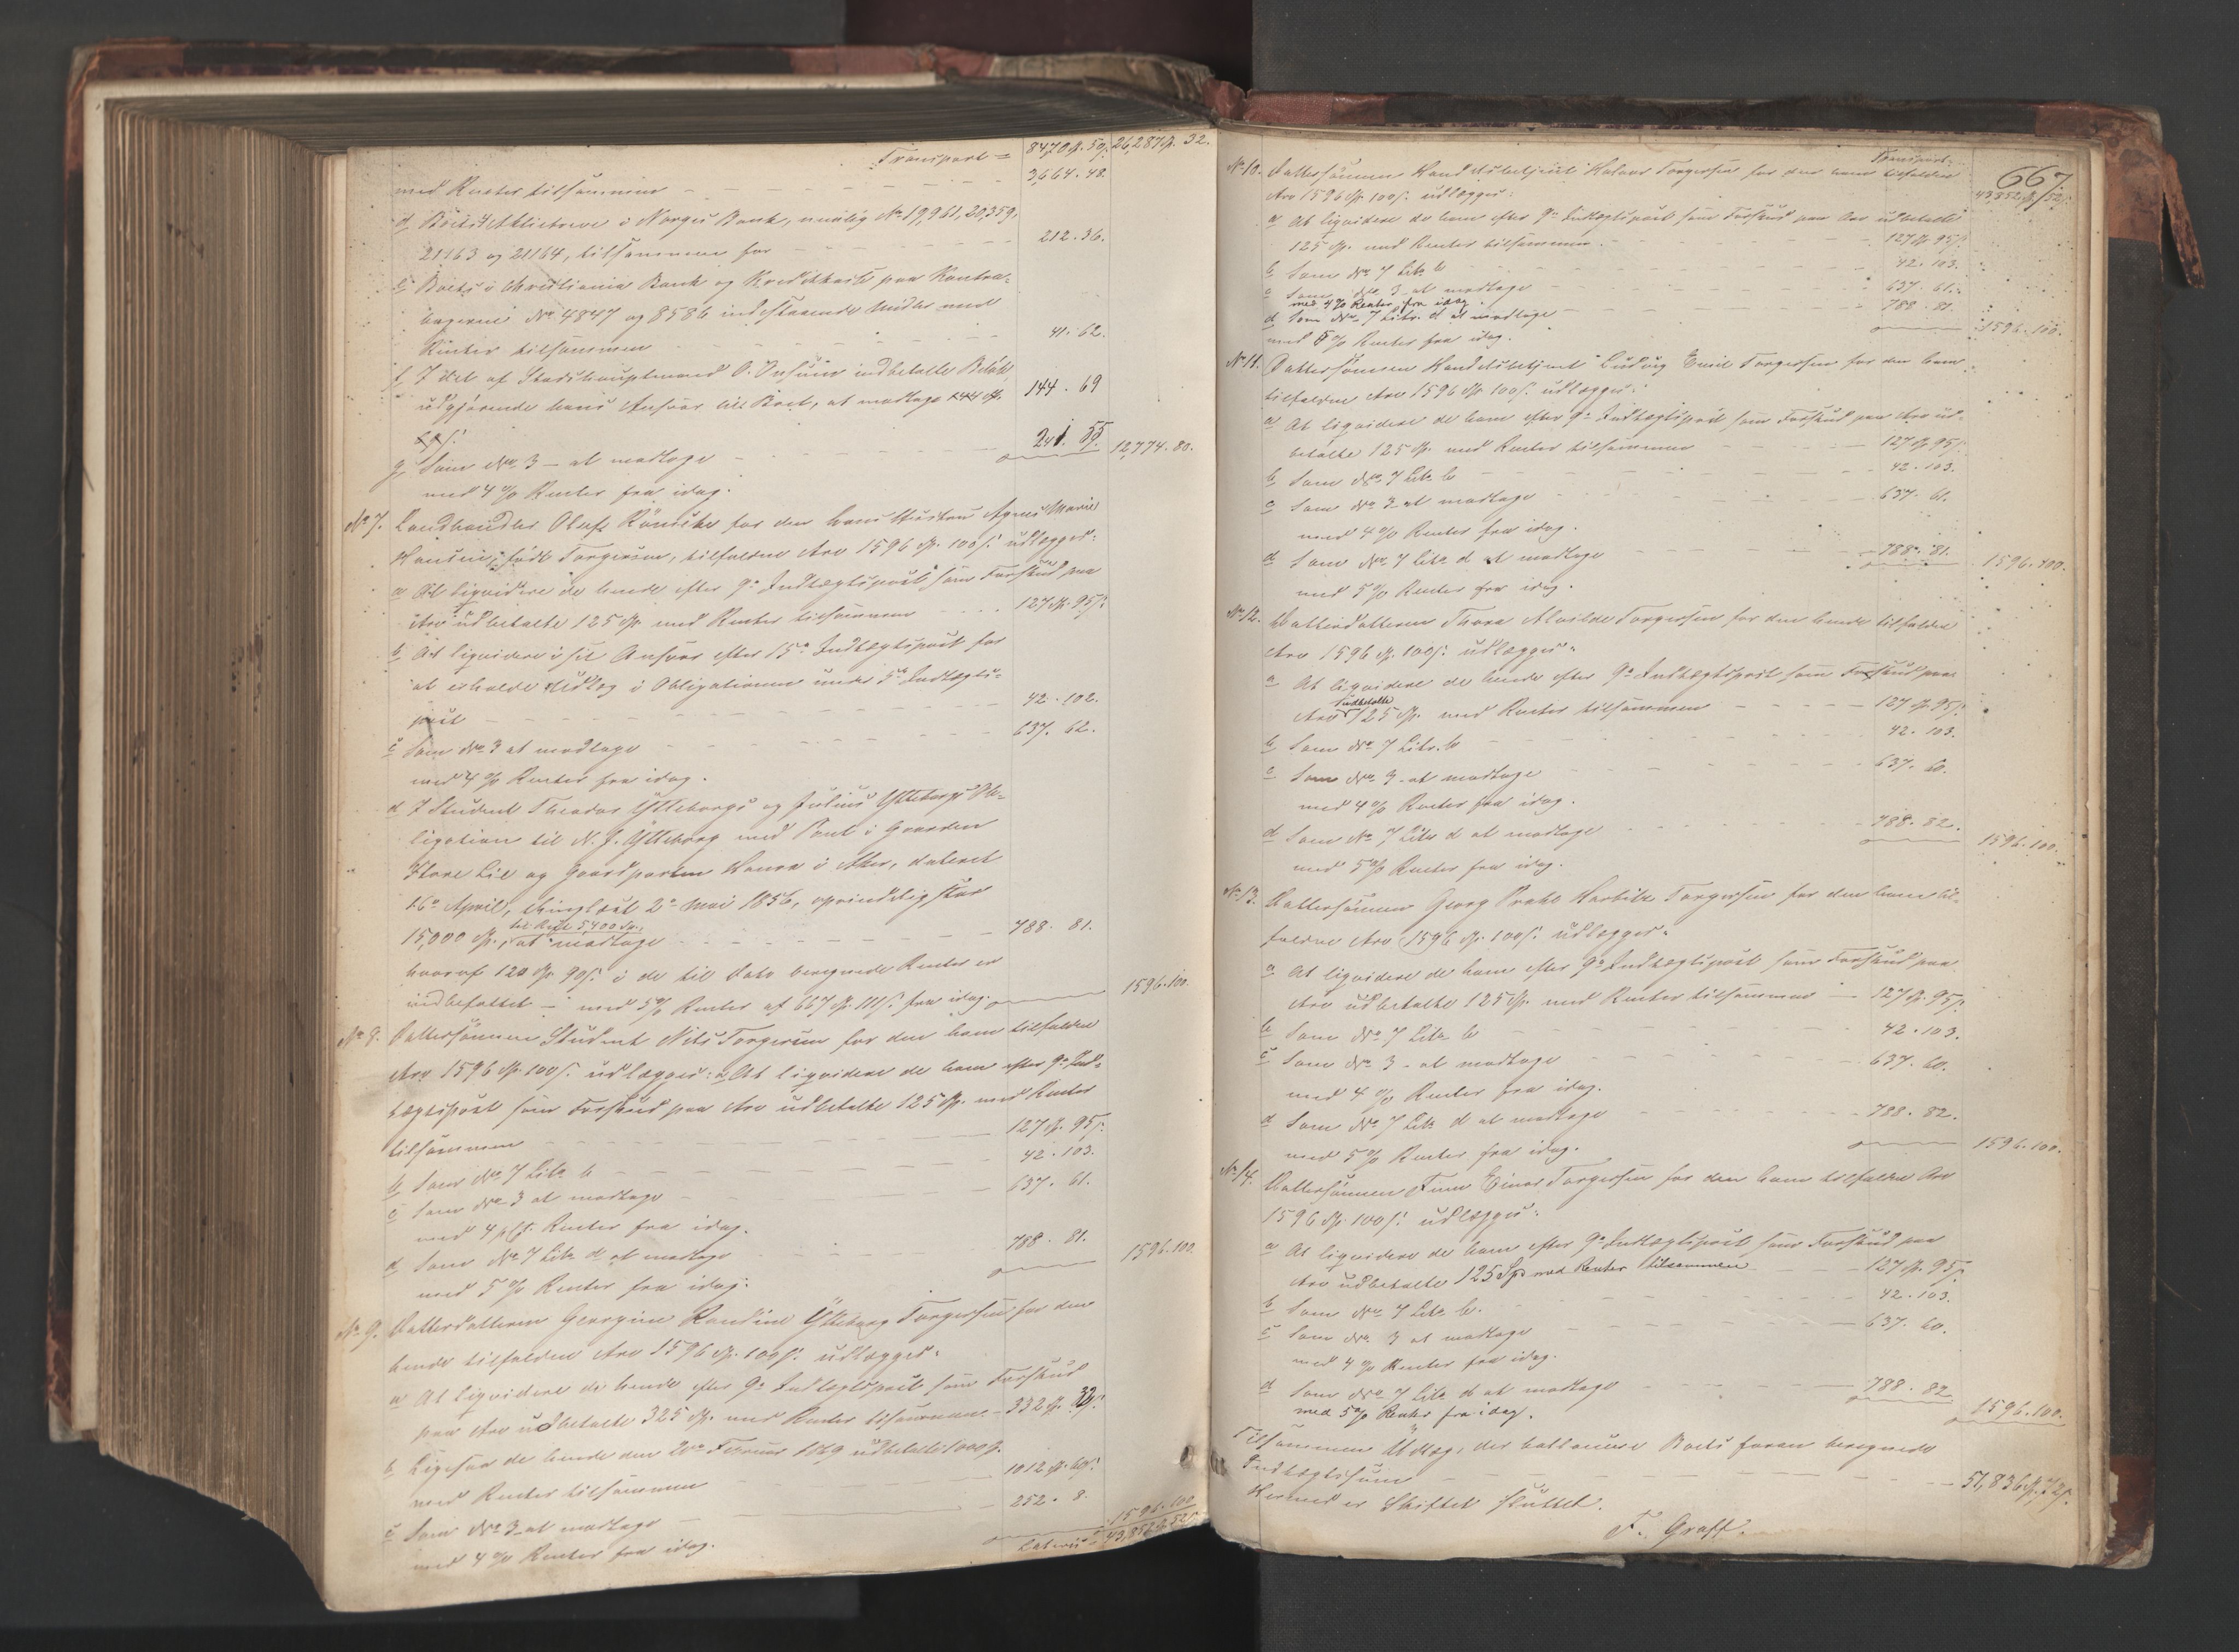 Transport = 8470 Sp. 50 s. 26,287 Sp. 32.
med Renter tilsammen — 3,664. 48.
d Boets 4 Aktiebreve i Norges Bank, nemlig No 19,961, 20,359,
21163 og 21164, tilsammen for — 212. 36.
e Boets i Christiania Bank og Kreditkasse paa Kontra-
bøgerne No 4847 og 8586 indestaaende Midler med
Renter tilsammen — 41. 62.
f I det af Stadshauptmand O. indbetalte Beløb,
udgjørende hans Ansvar til Boet, at modtage 144 Sp. 144. 69
g Som No 3 – at modtage — 241. 55. 12,774. 80.
med 4 % Renter fra idag.
No 7. Landhandler Oluf for den hans Hustru Agnes Marie
Hansine, født Torgersen, tilfaldne Arv 1596 Sp. 100 s. udlægges:
a At liqvidere de hende efter 9de Indtægtspost som Forskud paa
Arv udbetalte 125 Sp. med Renter tilsammen — 127 Sp. 95 s.
b At liqvidere i sit Ansvar efter 15de Indtægtspost for
at erholde Udlæg i Obligationen under 5te Indtægts-
post — 42. 102.
c Som No 3 at modtage — 637. 62.
med 4 % Renter fra idag.
d I Student Theodor Ytteborgs og Julius Ytteborgs Ob-
ligation til N. J. Ytteborg med Pant i Gaarden
Store Lie og Gaardparten i Aker, dateret
16de April, thinglæst 2den Mai 1856, oprindelig stor
15,000 Sp., til Rest 5,400 Sp., at modtage — 788. 81.
hvoraf 120 Sp. 90 s. i de til Dato beregnede Renter er
indbefattet – med 5 % Renter af 667 Sp. 111 s. fra idag. 1596. 100.
No 8. Dattersønnen Student Nils Torgersen for den ham tilfaldne
Arv 1596 Sp. 100 s. udlægges: a At liqvidere de ham efter 9de Ind-
tægtspost som Forskud paa Arv udbetalte 125 Sp. med Renter
tilsammen — 127 Sp. 95 s.
b Som No 7 Litr. b — 42. 103.
c Som No 3 at modtage — 637. 61.
med 4 pCt. Renter fra idag.
d Som No 7 Litr. d at modtage — 788. 81. 1596. 100.
med 5 % Renter fra idag.
No 9. Datterdatteren Georgine Randine Ytteborg Torgersen for den
hende tilfaldne Arv 1596 Sp. 100 s. udlægges:
a At liqvidere de hende efter 9de Indtægtspost som Forskud
paa Arv udbetalte 325 Sp. med Renter tilsammen – 332 Sp. 32 s.
b Ligesaa de hende den 20de Februar 1869 udbetalte 1000 Sp.
med Renter tilsammen — 1012 Sp. 60 s.
c Som No 3 – at modtage — 252. 8. 1596. 100
med 4 % Renter fra idag. Lateris 43,852 Sp. 52 s.
667.
Transport = 43,852 Sp. 52 s.
No 10. Dattersønnen Handelsbetjent Halvor Torgersen for den ham tilfaldne
Arv 1596 Sp. 100 s. udlægges:
a At liqvidere de ham efter 9de Indtægtspost som Forskud paa Arv udbetalte
125 Sp. med Renter tilsammen — 127 Sp. 95 s.
b Som No 7 Litr. b — 42. 103.
c Som No 3 – at modtage — 637. 61.
med 4 % Renter fra idag.
d Som No 7 Litr. d at modtage — 788. 81. 1596. 100.
med 5 % Renter fra idag.
No 11. Dattersønnen Handelsbetjent Ludvig Emil Torgersen for den ham
tilfaldne Arv 1596 Sp. 100 s. udlægges:
a At liqvidere de ham efter 9de Indtægtspost som Forskud paa Arv ud-
betalte 125 Sp. med Renter tilsammen — 127 Sp. 95 s.
b Som No 7 Litr. b — 42. 103.
c Som No 3 – at modtage — 637. 61.
med 4 % Renter fra idag.
d Som No 7 Litr. d at modtage — 788. 81. 1596. 100.
med 5 % Renter fra idag.
No 12. Datterdatteren Thora Alvilde Torgersen for den hende tilfaldne
Arv 1596 Sp. 100 s. udlægges:
a At liqvidere de hende efter 9de Indtægtspost som Forskud paa
Arv udbetalte 125 Sp. med Renter tilsammen — 127 Sp. 95 s.
b Som No 7 Litr. b — 42. 103.
c Som No 3 – at modtage — 637. 60.
med 4 % Renter fra idag.
d Som No 7 Litr. d at modtage — 788. 82. 1596. 100.
med 5 % Renter fra idag.
No 13. Dattersønnen Georg Prahl Harbitz Torgersen for den ham til-
faldne Arv 1596 Sp. 100 s. udlægges:
a At liqvidere de ham efter 9de Indtægtspost som Forskud paa
Arv udbetalte 125 Sp. med Renter tilsammen — 127 Sp. 95 s.
b Som No 7 Litr. b — 42. 103.
c Som No 3 – at modtage — 637. 60.
med 4 % Renter fra idag.
d Som No 7 Litr. d at modtage — 788. 82.
med 5 % Renter fra idag. 1596. 100.
No 14. Dattersønnen Finn Einar Torgersen for den ham tilfaldne Arv
1596 Sp. 100 s. udlægges:
a At liqvidere de ham efter 9de Indtægtspost som Forskud paa
Arv udbetalte 125 Sp. med Renter tilsammen — 127 Sp. 95 s.
b Som No 7 Litr. b. — 42. 103.
c Som No 3 at modtage — 637. 60.
med 4 % Renter fra idag.
d Som No 7 Litr. d at modtage — 788. 82
med 5 % Renter fra idag. 1596. 100.
Tilsammen Udlæg, der ballancere Boets foran beregnede
Indtægtssum — 51,836 Sp. 72 s.
Hermed er Skiftet sluttet.
F. Graff.